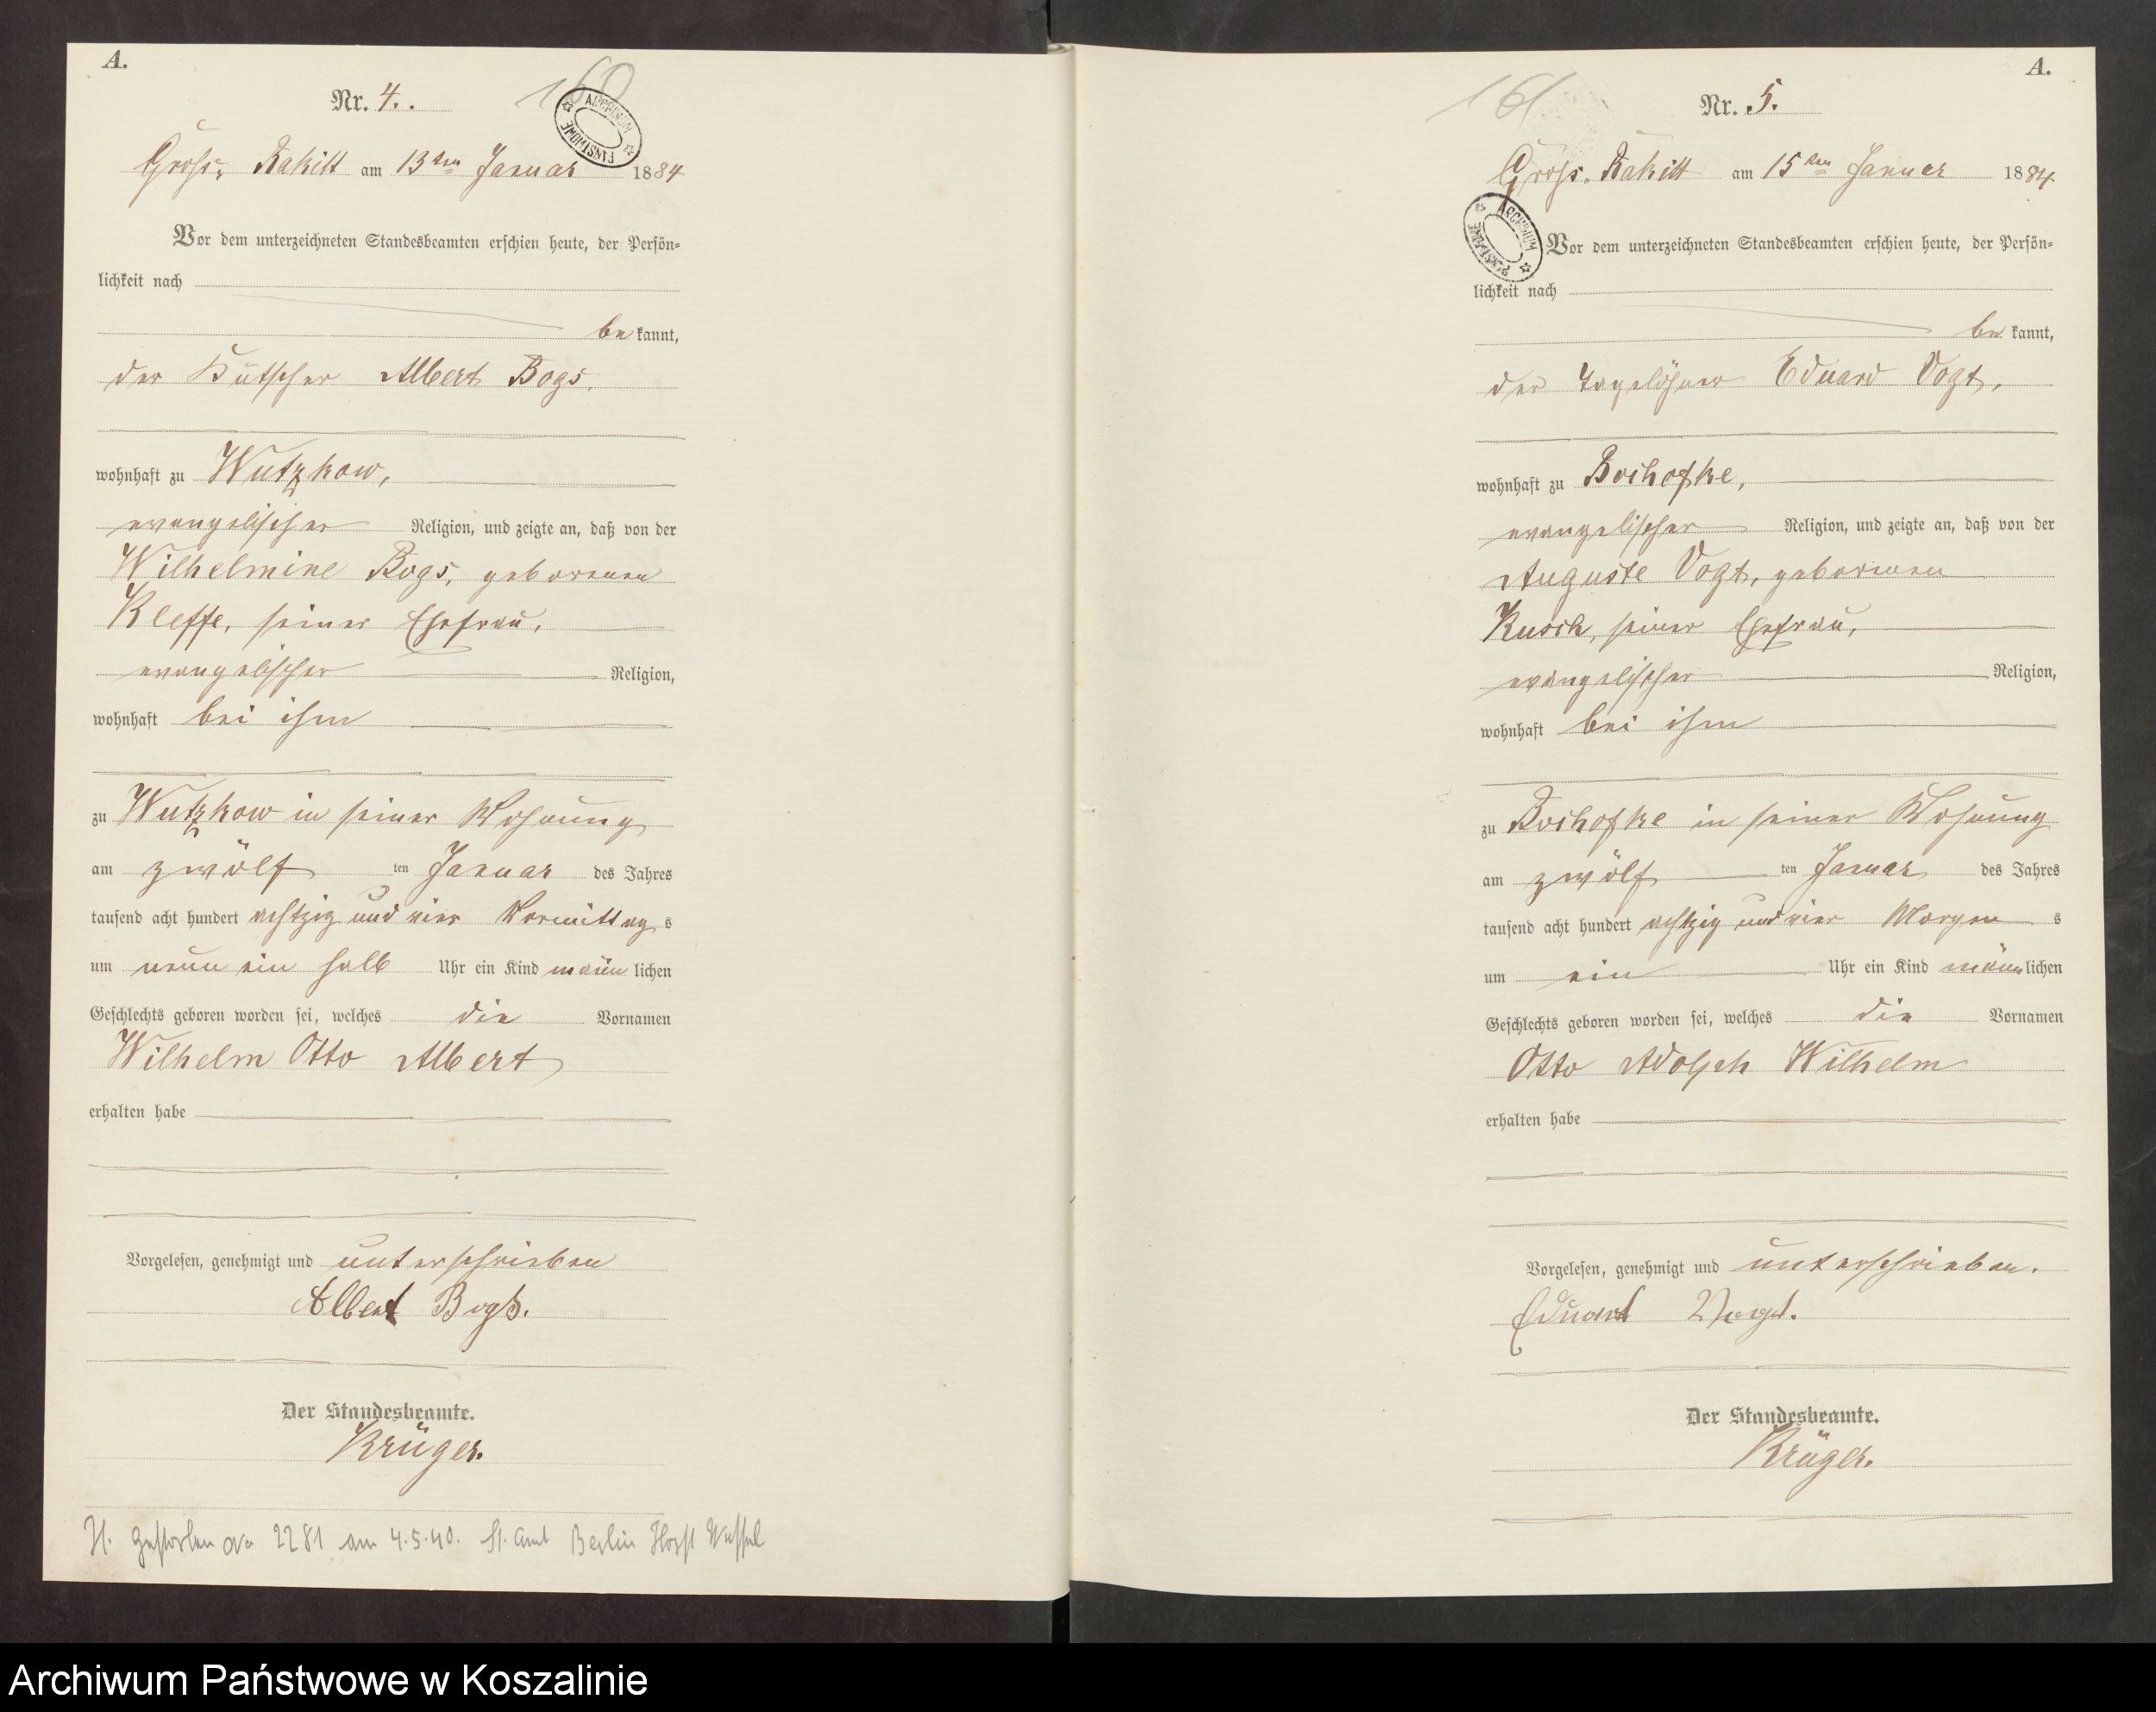 A.
Nr. 4..
160
ARCHIWUM PAŃSTWOWE
Gross-Rakitt am 13ten Januar 1884
Vor dem unterzeichneten Standesbeamten erschien heute, der Persön-
lichkeit nach
be kannt,
der Kutscher Albert Bogs,
wohnhaft zu Wutzkow,
evangelischer Religion, und zeigte an, daß von der
Wilhelmine Bogs, geborenen
Kleffe, seiner Ehefrau,
evangelischer Religion,
wohnhaft bei ihm
zu Wutzkow in seiner Wohnung
am zwölf ten Januar des Jahres
tausend acht hundert achtzig und vier Vormittag s
um neun ein halb Uhr ein Kind männ lichen
Geschlechts geboren worden sei, welches die Vornamen
Wilhelm Otto Albert
erhalten habe
Vorgelesen, genehmigt und unterschrieben
Albert Bogs.
Der Standesbeamte.
Krüger.
H. gestorben No 2281 am 4.5.40. St. Amt Berlin Horst Wessel
A.
161
Nr. 5.
Gross-Rakitt am 15ten Januar 1884
ARCHIWUM PAŃSTWOWE
Vor dem unterzeichneten Standesbeamten erschien heute, der Persön-
lichkeit nach
be kannt,
der Tagelöhner Eduard Vogt,
wohnhaft zu Bochofke,
evangelischer Religion, und zeigte an, daß von der
Auguste Vogt, geborenen
Kusch, seiner Ehefrau,
evangelischer Religion,
wohnhaft bei ihm
zu Bochofke in seiner Wohnung
am zwölf ten Januar des Jahres
tausend acht hundert achtzig und vier Morgen s
um ein Uhr ein Kind männ lichen
Geschlechts geboren worden sei, welches die Vornamen
Otto Adolph Wilhelm
erhalten habe
Vorgelesen, genehmigt und unterschrieben.
Eduard Vogt.
Der Standesbeamte.
Krüger.
Archiwum Państwowe w Koszalinie